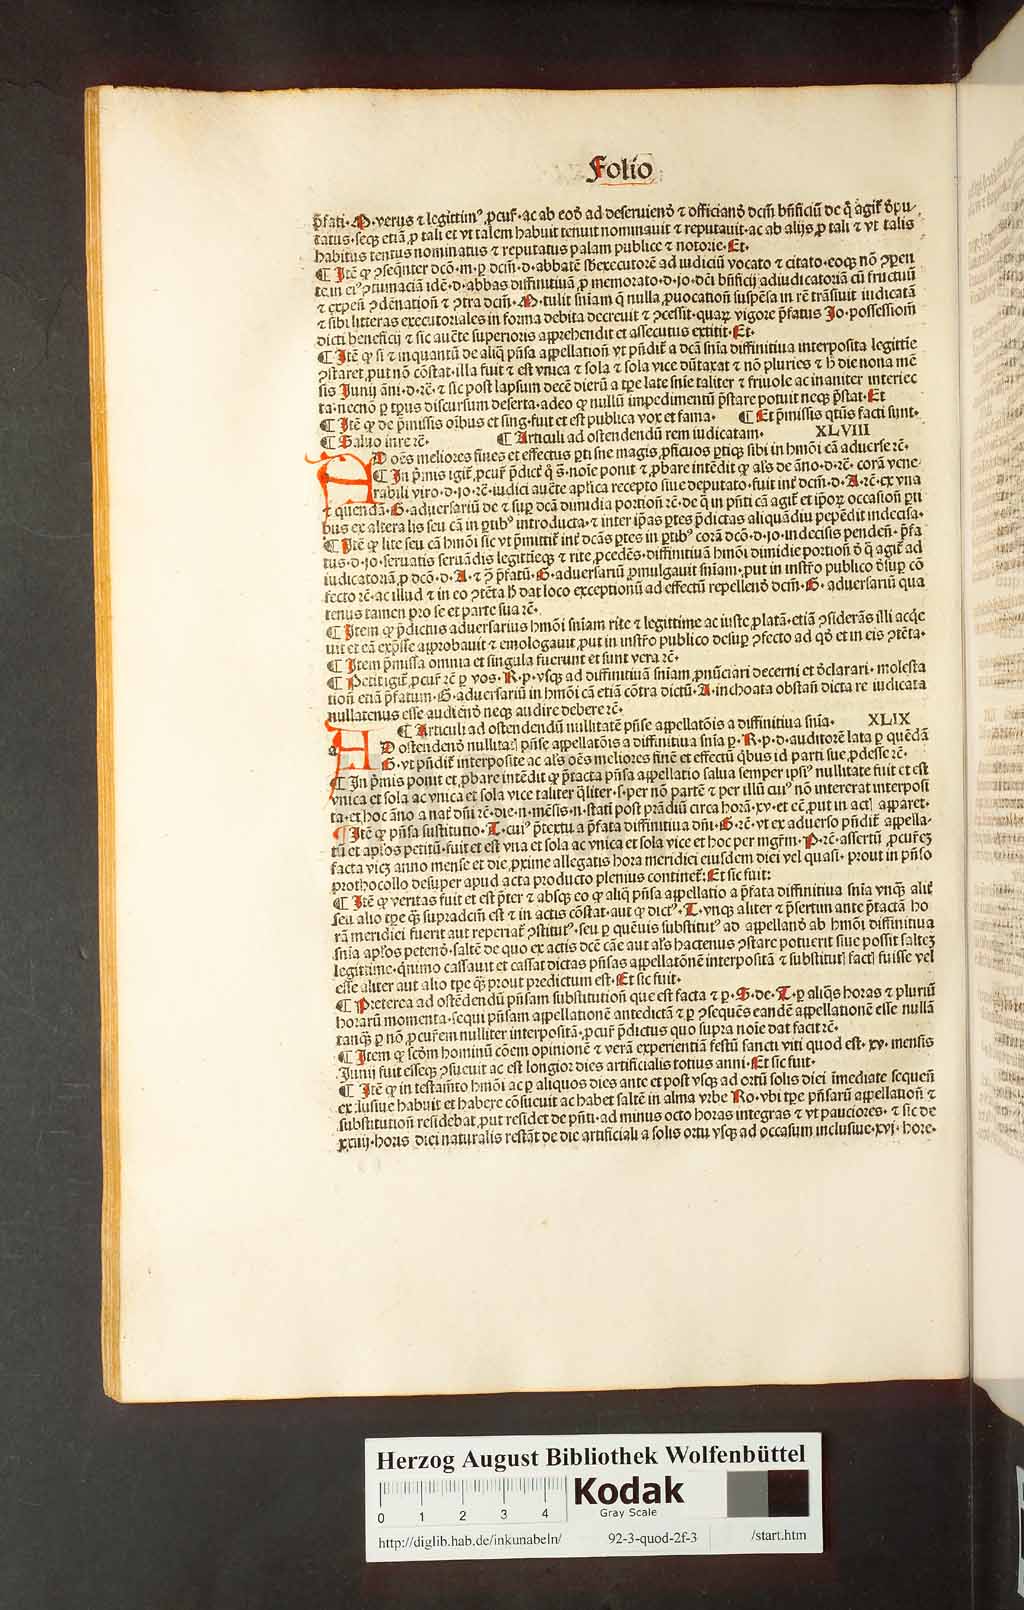 Folio
p̄fati·N·verus ⁊ legittim⁹ ꝓcur̄·ac ab eod̄ ad deseruiend̄ ⁊ officiand̄ dcm̄ bn̄ficiū de q̄ agit̄ d̄pu-
tatus·seqꝫ etiā ꝓ tali et vt talem habuit tenuit nominauit ⁊ reputauit·ac ab alijs ꝓ tali ⁊ vt talis
habitus tentus nominatus ⁊ reputatus palam publice ⁊ notorie·Et·
¶ Itē ꝙ ꝯseqn̄ter dcō·m·ꝑ dcm̄·d·abbatē sb̄executorē ad iudiciū vocato ⁊ citato·eoqꝫ nō ꝯꝑen
te·in ei⁹ ꝯtumaciā idē·d·abbas diffinitiuā ꝓ memorato·d·jo·dc̄i bn̄ficij adiudicatoriā cū fructuū
⁊ expen̄ ꝯdēnation̄ ⁊ ꝯtra dcm̄·N·tulit sn̄iam q̄ nulla ꝓuocation̄ suspēsa in rē trāsiuit iudicatā
⁊ sibi litteras executoriales in forma debita decreuit ⁊ ꝯcessit·quaꝝ vigore p̄fatus Jo·possessionē
dicti beneficij ⁊ sic auc̄te superioris apprehendit et assecutus extitit·Et·
¶ Itē ꝙ si ⁊ inquantū de aliq̄ pn̄sa appellation̄ vt pn̄dit̄ a dc̄a sn̄ia diffinitiua interposita legittie
ꝯstaret ꝓut nō cōstat·illa fuit ⁊ est vnica ⁊ sola ⁊ sola vice dūtaxat ⁊ nō pluries ⁊ h̄ die nona mē
sis Junij āni·d·rē·⁊ sic post lapsum decē dierū a tꝑe late snīe taliter ⁊ friuole ac inaniter interiec
ta·necnō ꝑ tꝑus discursum deserta·adeo ꝙ nullū impedimentū p̄stare potuit neqꝫ p̄stat·Et
¶ Itē ꝙ de p̄missis oībus et sing·fuit et est publica vox et fama· ¶ Et p̄missis qtūs facti sunt·
¶ Saluo iure rē· ¶ Articuli ad ostendendū rem iudicatam· XLVIII
AD oēs meliores fines et effectus ꝑti sue magis ꝓficuos ꝑticꝫ sibi in hmōi cā aduerse rē·
¶ In p̄mis igit̄ ꝓcur̄ p̄dict̄ q̄ ā·noīe ponit ⁊ ꝓbare intēdit ꝙ als̄ de āno·d·rē· corā vene
rabili viro·d·jo·rē·iudici auc̄te aplīca recepto siue deputato·fuit int̄ dcm̄·d·A·rē·ex vna
⁊ quendā·G·aduersariū de ⁊ suꝑ dcā dimidia portion̄ rē·de q̄ in pn̄ti cā agit̄ et ipōꝝ occasion̄ ꝑti
bus ex altera lis seu cā in ꝑtib⁹ introducta·⁊ inter ip̄as ꝑtes p̄dictas aliquādiu pepēdit indecisa·
¶ Itē ꝙ lite seu cā hmōi sic vt p̄mittit̄ int̄ dcās ꝑtes in ꝑtib⁹ corā dcō·d·jo·indecisis penden̄·p̄fa
tus·d·jo·seruatis seruādis legittieqꝫ ⁊ rite ꝓcedēs·diffinitiuā hmōi dimidie portion̄ d̄ q̄ agit̄ ad
iudicatoriā ꝓ dcō·d·A·⁊ ꝯ p̄fatū·G·aduersariū ꝓmulgauit sn̄iam·put in instr̄o publico d̄suꝑ cō
fecto rē·ac illud ⁊ in eo ꝯtēta h̄ dat loco exceptionū ad effectū repellend̄ dcm̄·G· aduersariū qua
tenus tamen pro se et parte sua rē·
¶ Item ꝙ p̄dictus aduersarius hmōi sn̄iam rite ⁊ legittime ac iuste ꝓlatā·etiā ꝯsiderās illi acq̄e
uit et eā exp̄sse approbauit ⁊ emologauit ꝓut in instr̄o publico desuꝑ ꝯfecto ad qd̄ et in eis ꝯtēta·
¶ Item p̄missa omnia et singula fuerunt et sunt vera rē·
¶ Petit igit̄ ꝓcur̄ rē ꝑ vos·R·p·vsqꝫ ad diffinitiuā sn̄iam ꝓnūciari decerni et d̄clarari· molesta
tion̄ etiā p̄fatum·G·aduersariū in hmōi cā etiā cōtra dictū·A·inchoata obstan̄ dicta re iudicata
nullatenus esse audiend̄ neqꝫ audire debere rē·
¶ Articuli ad ostendendū nullitatē pn̄se appellatōis a diffinitiua sn̄ia· XLIX
AD ostendend̄ nullitatꝭ pn̄se appellatōis a diffinitiua sn̄ia ꝑ·R·p·d·auditorē lata ꝑ quēdā
G·vt pn̄dit̄ interposite ac als̄ oēs meliores finē et effectū q̄bus id parti sue ꝓdesse rē·
¶ In p̄mis ponit et ꝓbare intēdit ꝙ p̄tacta pn̄sa appellatio salua semper ipsi⁹ nullitate fuit et est
vnica et sola ac vnica et sola vice taliter q̄liter·s·per nō partē ⁊ per illū cui⁹ nō intererat interposi
ta·et hoc āno a nat̄ dn̄i rē·die·n·mēsis·n·stati post prādiū circa horā·xv·et ec̄ ꝓut in actꝭ apparet·
¶ Itē ꝙ pn̄sa sustitutio·T·cui⁹ p̄textu a p̄fata diffinitiua dn̄i·G·rē·vt ex aduerso pn̄dit̄ appella-
tū et apl̄os petitū·fuit et est vna et sola ac vnica et sola vice et hoc per mgr̄m·P·rē·assertū ꝓcur̄eꝫ
facta vicꝫ anno mense et die ꝓxime allegatis hora meridiei eiusdem diei vel quasi· prout in pn̄so
prothocollo desuper apud acta producto plenius continet̄: Et sic fuit:
¶ Itē ꝙ veritas fuit et est p̄ter ⁊ absqꝫ eo ꝙ aliq̄ pn̄sa appellatio a p̄fata diffinitiua sn̄ia vnqꝫ alit̄
seu alio tꝑe qꝫ supradcm̄ est ⁊ in actis cōstat·aut ꝙ dict⁹·T·vnqꝫ aliter ⁊ p̄sertim ante p̄tactā ho
rā meridiei fuerit aut reperiat̄ ꝯstitut⁹·seu ꝑ quēuis substitut⁹ ad appelland̄ ab hmōi diffinitiua
sn̄ia apl̄os petend̄·saltē de quo ex actis dcē cāe aut als̄ hactenus ꝯstare potuerit siue possit saltcꝫ
legitime·quīmo cassauit et cassat dictas pn̄sas appellatōnē interpositā ⁊ substitutꝭ factꝭ fuisse vel
esse aliter aut alio tꝑe qꝫ prout predictum est·Et sic fuit·
¶ Preterea ad ostēdendū pn̄sam substitution̄ que est facta ⁊ ꝑ·S·de·T·ꝑ aliqs̄ horas ⁊ pluriū
horarū momenta·sequi pn̄sam appellationē antedictā ⁊ ꝑ ꝯsequēs eandē appellationē esse nullā
tanqꝫ ꝑ nō ꝓcur̄em nulliter interpositā·ꝓcur̄ p̄dictus quo supra noīe dat facit rē·
¶ Item ꝙ scd̄m hominū cōem opinionē ⁊ verā experientiā festū sancti viti quod est·xv·mensis
Junij fuit esseqꝫ ꝯsueuit ac est longior dies artificialis totius anni·Et sic fuit·
¶ Itē ꝙ in testam̄to hmōi ac ꝑ aliquos dies ante et post vsqꝫ ad ortū solis diei īmediate sequen̄
exclusiue habuit et habere cōsueuit ac habet saltē in alma vrbe Ro·vbi tꝑe pn̄sarū appellation̄ ⁊
substitution̄ residebat ꝓut residet de pn̄ti·ad minus octo horas integras ⁊ vt pauciores·⁊ sic de
xxiiij·horis diei naturalis restāt de die artificiali a solis ortu vsqꝫ ad occasum inclusiue·xvj·hore·
Herzog August Bibliothek Wolfenbüttel
0 1 2 3 4
Kodak
Gray Scale
http://diglib.hab.de/inkunabeln/ 92-3-quod-2f-3 /start.htm